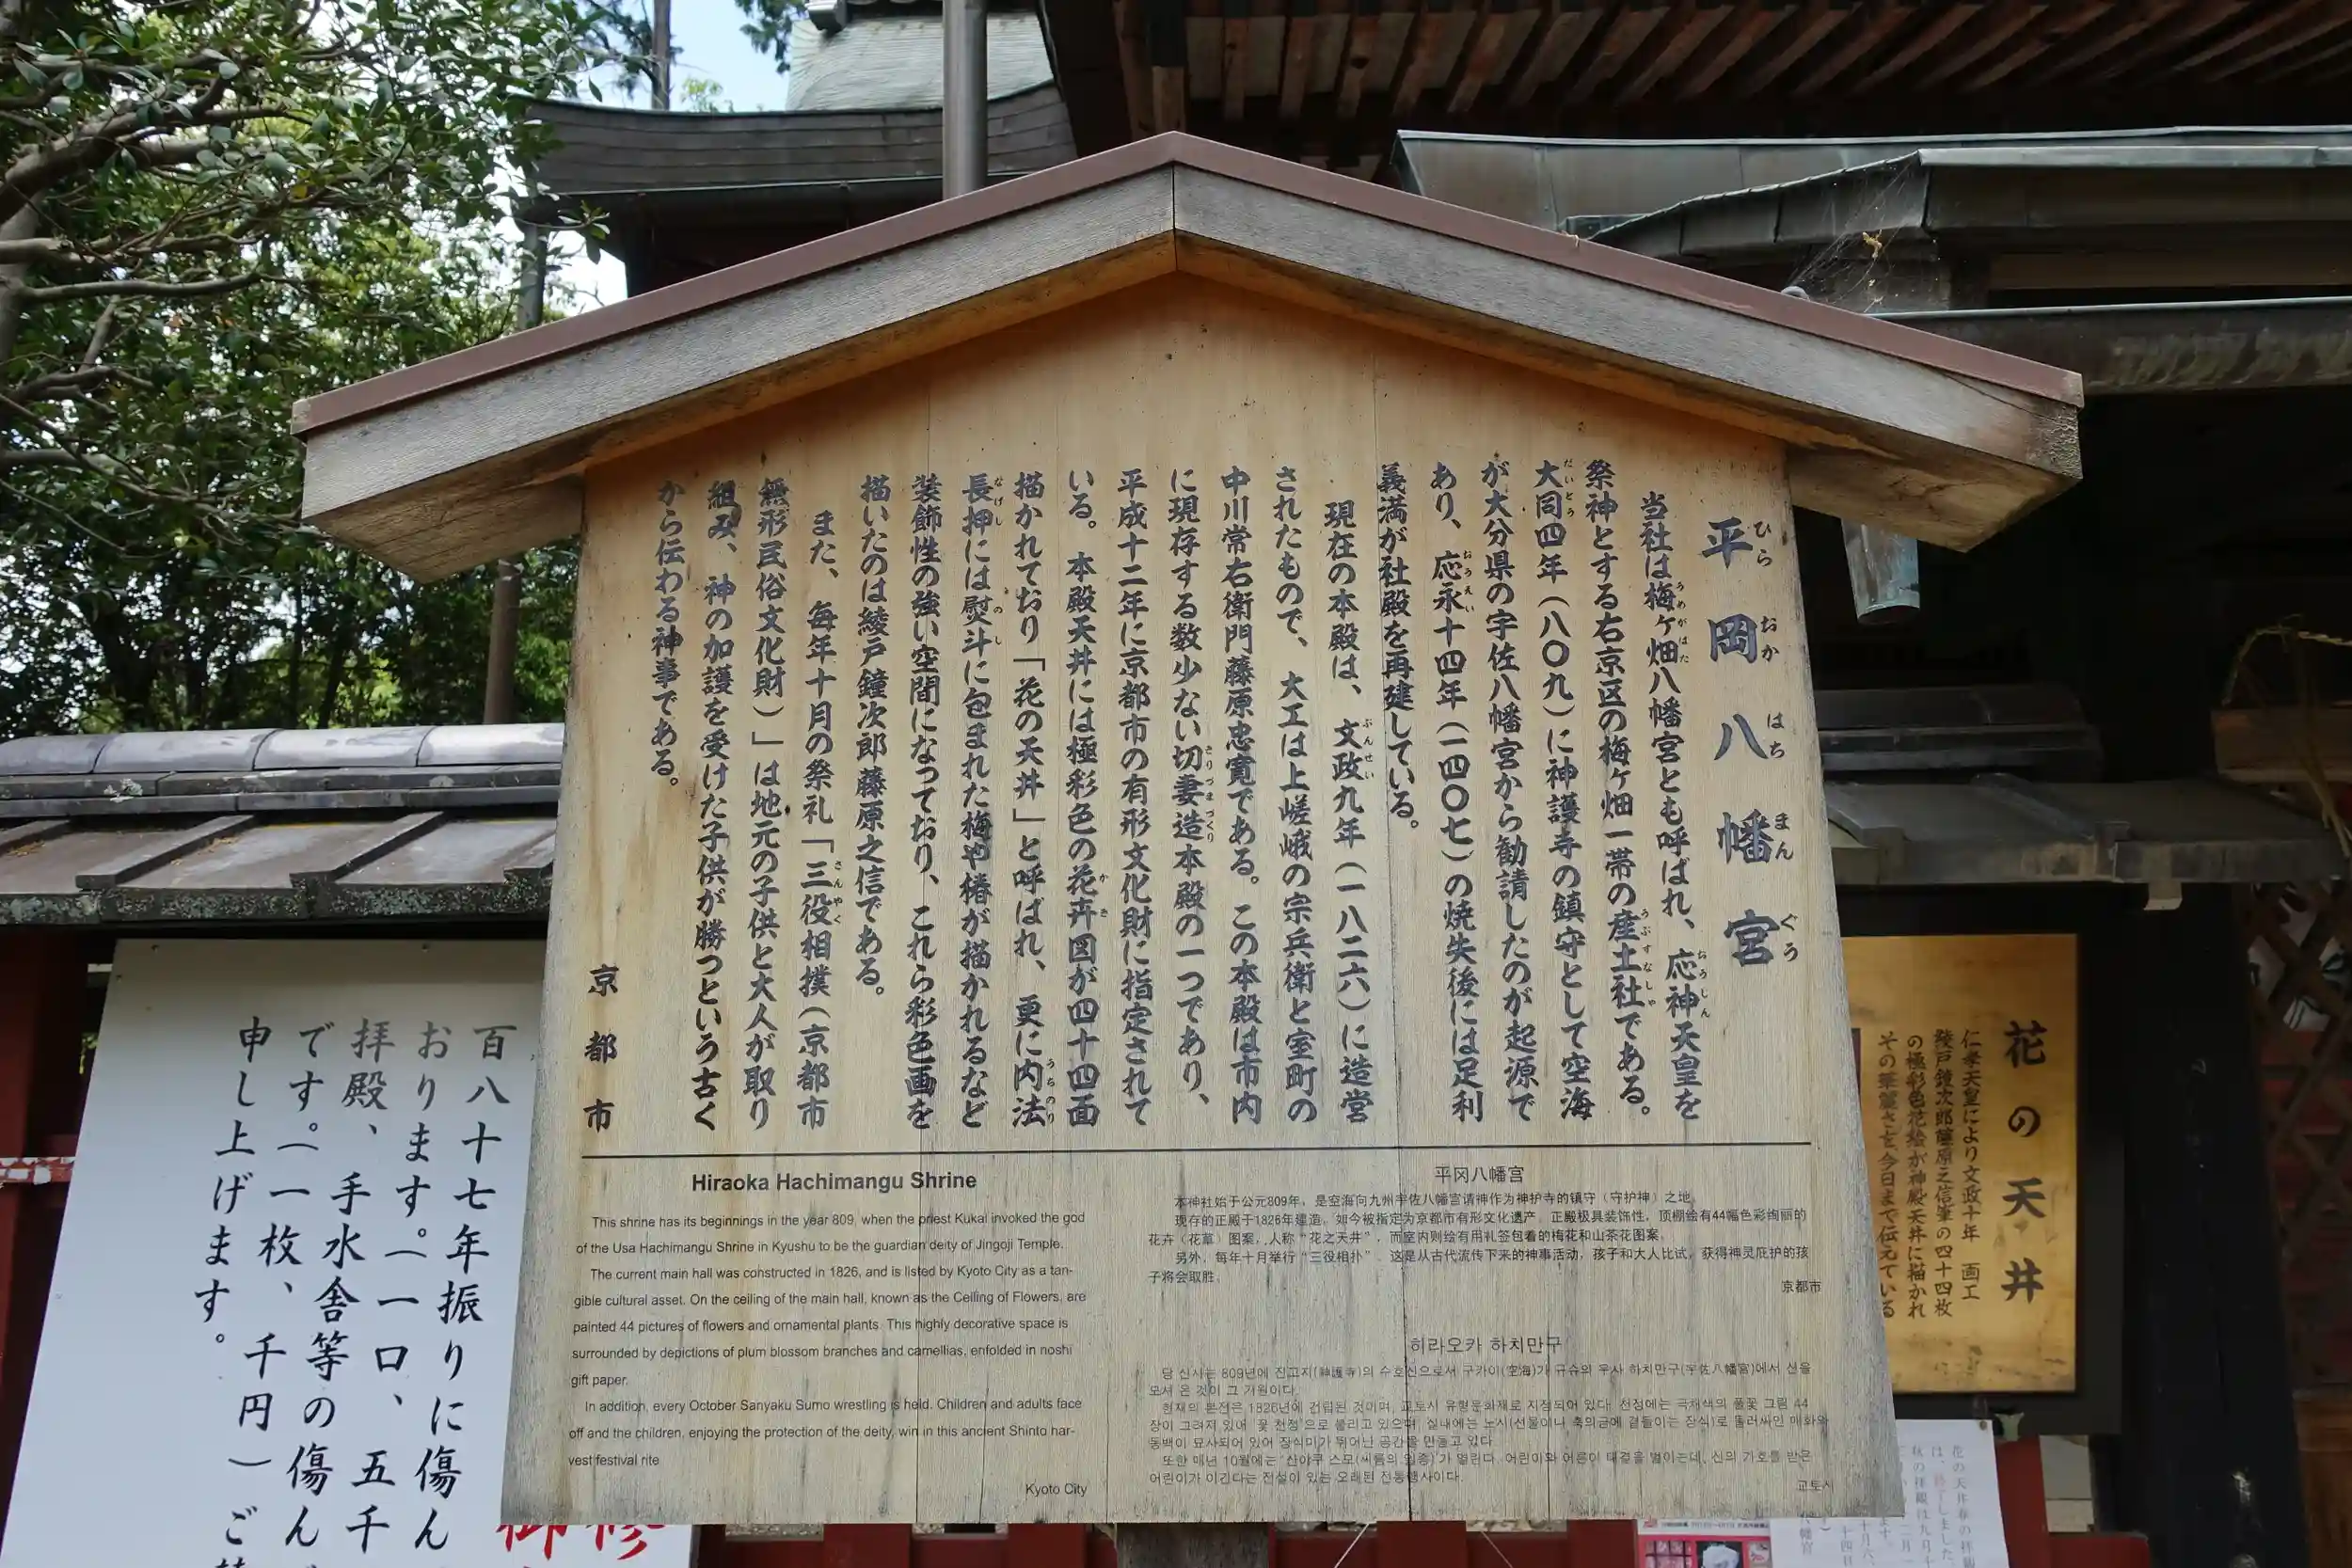 平岡八幡宮
ひらおかはちまんぐう
当社は梅ヶ畑八幡宮とも呼ばれ、応神天皇を
祭神とする右京区の梅ヶ畑一帯の産土社である。
大同四年（八〇九）に神護寺の鎮守として空海
が大分県の宇佐八幡宮から勧請したのが起源で
あり、応永十四年（一四〇七）の焼失後には足利
義満が社殿を再建している。
現在の本殿は、文政九年（一八二六）に造営
されたもので、大工は上嵯峨の宗兵衛と室町の
中川常右衛門藤原忠寛である。この本殿は市内
に現存する数少ない切妻造本殿の一つであり、
平成十二年に京都市の有形文化財に指定されて
いる。本殿天井には極彩色の花卉図が四十四面
描かれており「花の天井」と呼ばれ、更に内法
長押には熨斗に包まれた梅や椿が描かれるなど
装飾性の強い空間になっており、これら彩色画を
描いたのは綾戸鐘次郎藤原之信である。
また、毎年十月の祭礼「三役相撲（京都市
無形民俗文化財）」は地元の子供と大人が取り
組み、神の加護を受けた子供が勝つという古く
から伝わる神事である。
京都市
Hiraoka Hachimangu Shrine
This shrine has its beginnings in the year 809, when the priest Kukai invoked the god
of the Usa Hachimangu Shrine in Kyushu to be the guardian deity of Jingoji Temple.
The current main hall was constructed in 1826, and is listed by Kyoto City as a tan-
gible cultural asset. On the ceiling of the main hall, known as the Ceiling of Flowers, are
painted 44 pictures of flowers and ornamental plants. This highly decorative space is
surrounded by depictions of plum blossom branches and camellias, enfolded in noshi
gift paper.
In addition, every October Sanyaku Sumo wrestling is held. Children and adults face
off and the children, enjoying the protection of the deity, win in this ancient Shinto har-
vest festival rite
Kyoto City
平冈八幡宫
本神社始于公元809年，是空海向九州宇佐八幡宫请神作为神护寺的镇守（守护神）之地。
现存的正殿于1826年建造，如今被指定为京都市有形文化遗产。正殿极具装饰性，顶棚绘有44幅色彩绚丽的
花卉（花草）图案，人称“花之天井”，而室内则绘有用礼签包着的梅花和山茶花图案。
另外，每年十月举行“三役相扑”。这是从古代流传下来的神事活动，孩子和大人比试，获得神灵庇护的孩
子将会取胜。
京都市
히라오카 하치만구
당 신사는 809년에 진고지(神護寺)의 수호신으로서 구카이(空海)가 규슈의 우사 하치만구(宇佐八幡宮)에서 신을
모셔 온 것이 그 기원이다.
현재의 본전은 1826년에 건립된 것이며, 교토시 유형문화재로 지정되어 있다. 천정에는 극채색의 풀꽃 그림 44
장이 그려져 있어 '꽃 천정'으로 불리고 있으며, 실내에는 노시(선물이나 축의금에 곁들이는 장식)로 둘러싸인 매화와
동백이 묘사되어 있어 장식미가 뛰어난 공간을 만들고 있다.
또한 매년 10월에는 '산야쿠 스모(씨름의 일종)'가 열린다. 어린이와 어른이 대결을 벌이는데, 신의 가호를 받은
어린이가 이긴다는 전설이 있는 오래된 전통행사이다.
교토시
花の天井
仁孝天皇により文政十年 画工
綾戸鐘次郎藤原之信筆の四十四枚
の極彩色花絵が神殿天井に描かれ
その華麗さを今日まで伝えている
百八十七年振りに傷ん
おります。（一口、五千
拝殿、手水舎等の傷ん
です。（一枚、千円）ご
申し上げます。